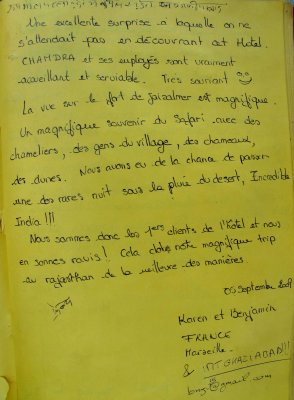 Une excellente surprise à laquelle on ne
s'attendait pas en découvrant cet Hotel.
CHANDRA et ses employés sont vraiment
accueillant et serviable. Tres souriant
La vue sur le fort de Jaisalmer est magnifique.
Un magnifique souvenir du Safari avec des
chameliers, des gens du village, des chameaux,
des dunes. Nous avons eu de la chance de passer
une des rares nuit sous la pluie du desert, Incredible
India !!!
Nous sommes donc les 1ers clients de l'hotel et nous
en sommes ravis! Cela clos notre magnifique trip
au rajasthan de la meilleure des manières.
Septembre
Karen et Benjamin
FRANCE
Marseille
& IMT GHAZIABAD!!!
@gmail.com